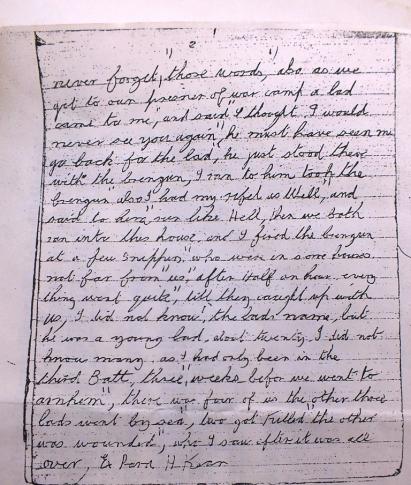 " 2 "
never forget, those words, also as we
got to our prisener of war camp a lad
came to me, and said "I thought I would
never see you again", he must have seen me
go back for the lad, he just stood there
with the brengun, I ran to him took the
brengun also I had my rifel as Well, and
said to him "run like Hell, then we both
ran into this house, and I fired the brengun
at a few snippers, who were in some houses
not far from "us", after Half an hour, every
thing went quite", till they caught up with
us, I did not know, the lads name, but
he was a young lad, about twenty, I did not
know many, as I had only been in the
third Batt, three, weeks before we went to
arnhem", there was four of us the other three
lads went by sea, two got killed, the other
was wounded, who I saw after it was all
over, Ex Para H